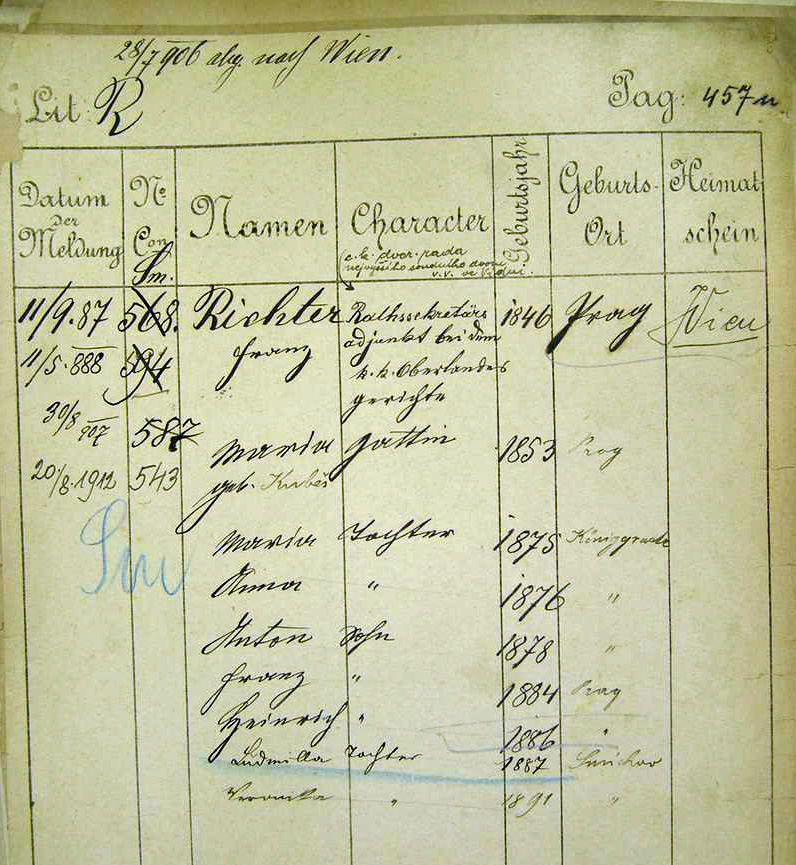 28/7 906 abg. nach Wien.
Lit: R Pag: 457
Datum der Meldung No Con Sm. Namen Character Geburtsjahr Geburts-Ort Heimatschein
c.k. dvor. rada
nejvyššího soudního dvoru
v.v. ve Vídni.
11/9.87 568. Richter Rathssekretärs 1846 Prag Wien
11/5.888 594 Franz adjunkt bei dem
k.k. Oberlandes
gerichte
30/8 907 587
Maria Gattin 1853 Prag
20/8.1912 543 geb. Kubeš
Sm
Maria Tochter 1875 Königgraetz
Anna " 1876 "
Anton Sohn 1878 "
Franz " 1884 Prag
Heinrich " 1886 "
Ludmilla Tochter 1887 Smichov
Veronika " 1891 "